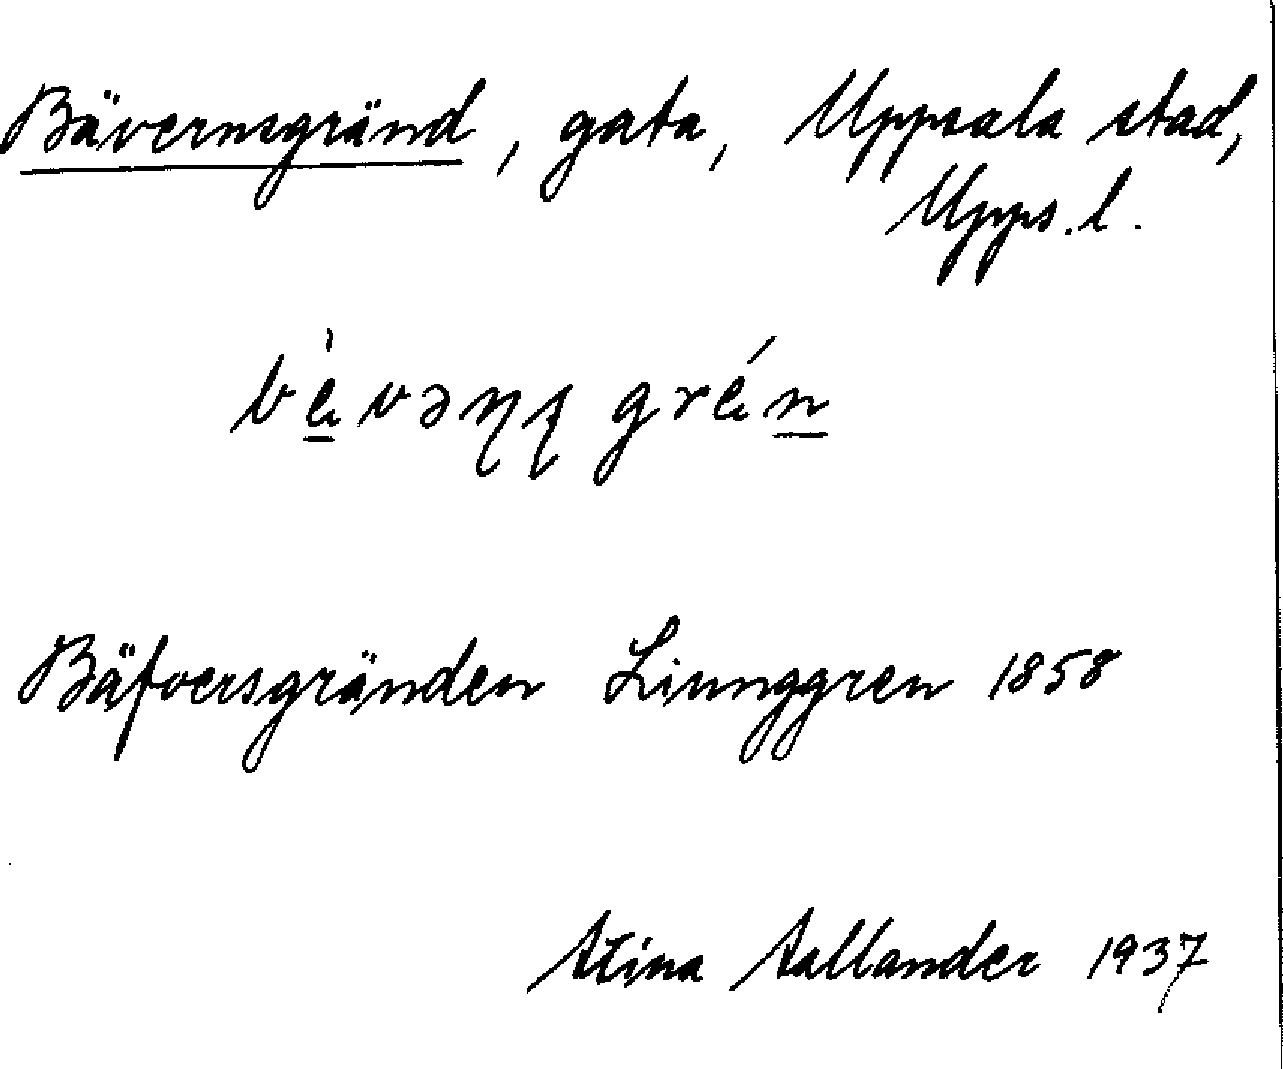 Bävernsgränd, gata, Uppsala stad,
Upps. l.
Bäfversgränden Liunggren 1858
Stina Sallander 1937